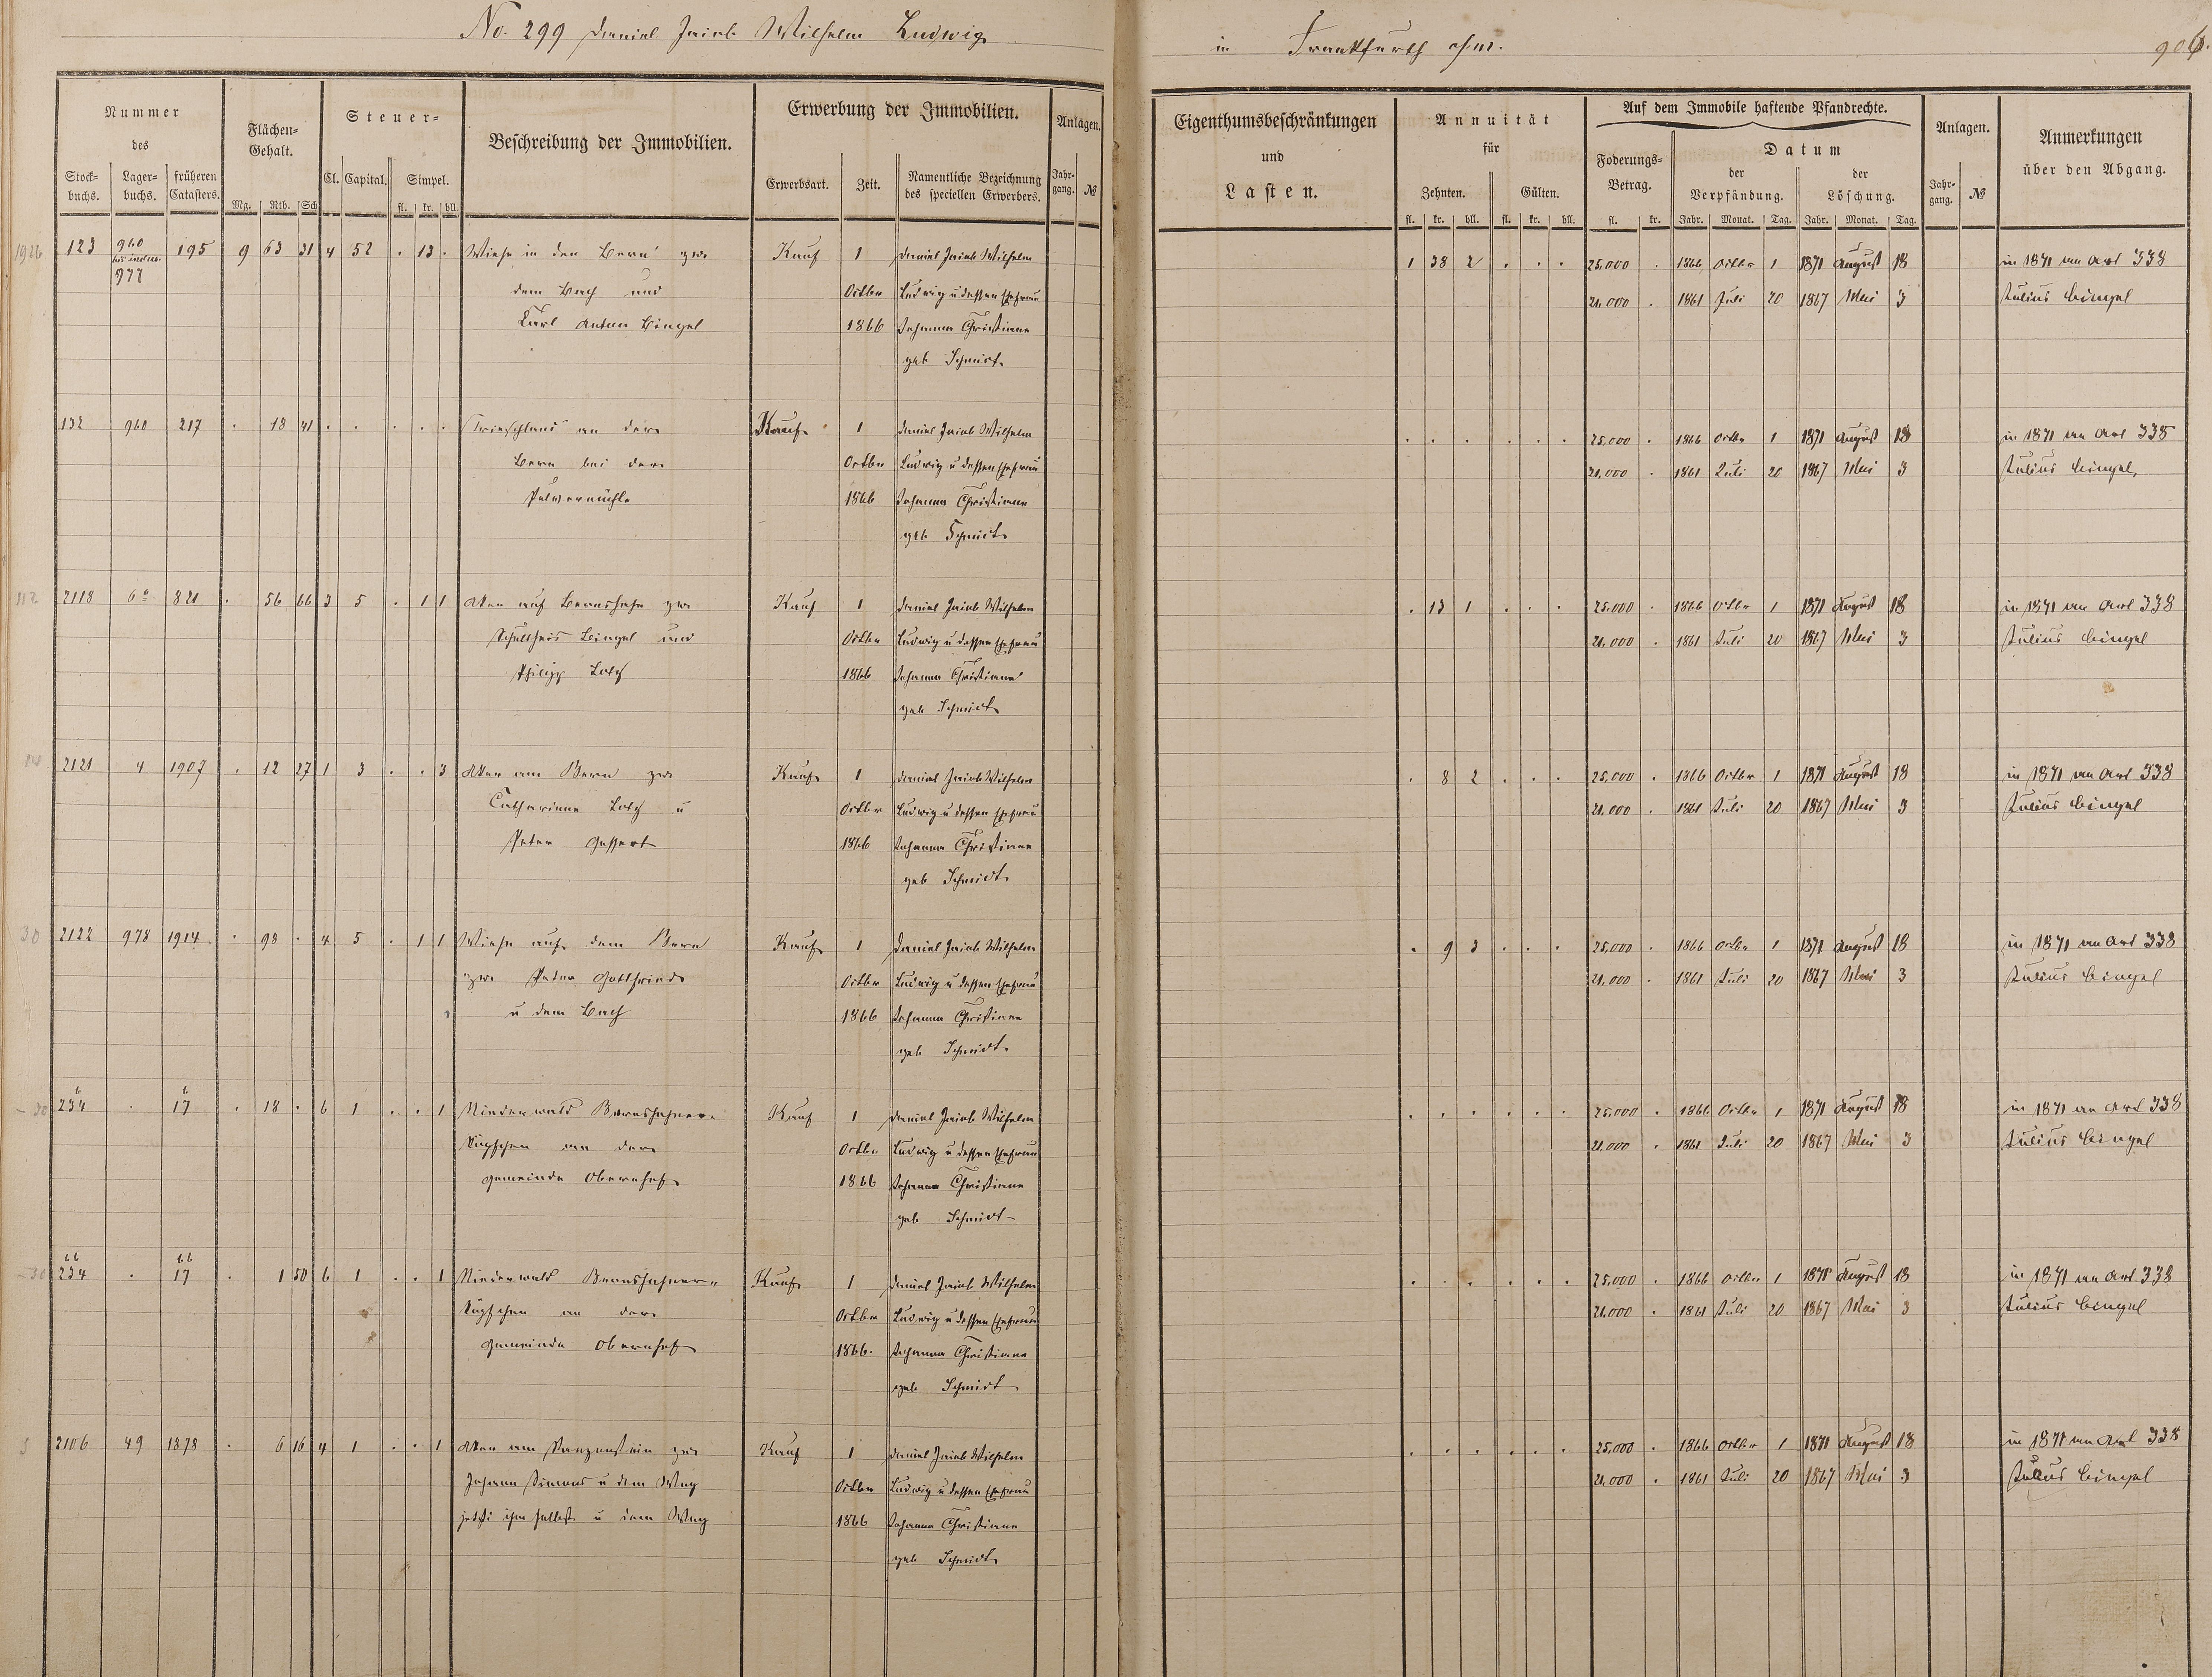 No. 299 Daniel Jacob Wilhelm Ludwig
in Frankfurth a/m.
906.
Nummer
des
Stock-
buchs.
Lager-
buchs.
früheren
Catasters.
Flächen-
Gehalt.
Mg. Rth. Sch
Steuer-
Cl. Capital. Simpel.
fl. kr. hll.
Beschreibung der Immobilien.
Erwerbung der Immobilien.
Erwerbsart. Zeit.
Namentliche Bezeichnung
des speciellen Erwerbers.
Anlagen.
Jahr-
gang. №
Eigenthumsbeschränkungen
und
Lasten.
Annuität
für
Zehnten. Gülten.
fl. kr. hll. fl. kr. hll.
Auf dem Immobile haftende Pfandrechte.
Foderungs-
Betrag.
fl. kr.
Datum
der
Verpfändung.
Jahr. Monat. Tag.
der
Löschung.
Jahr. Monat. Tag.
Anlagen.
Jahr-
gang. №
Anmerkungen
über den Abgang.
123 960 195 9 63 31 4 52 . 13 . Wiese in der Bern zw. Kauf 1 Daniel Jacob Wilhelm 1 38 2 . . . 25,000 . 1866 Octbr 1 1871 August 18 in 1871 an Art 338
977 dem Bach und Octbr Ludwig u dessen Ehefrau 21,000 . 1861 Juli 20 1867 Mai 3 Julius Bingel
Karl Anton Bingel 1866 Johanna Christiane
geb Schmidt
132 960 217 . 18 41 . . . . . Trieschland an der Kauf 1 Daniel Jacob Wilhelm . . . . . . 25,000 . 1866 Octbr 1 1871 August 18 in 1871 an Art 338
Bern bei der Octbr Ludwig u dessen Ehefrau 21,000 . 1861 Juli 20 1867 Mai 3 Julius Bingel
Pulvermühle 1866 Johanna Christiane
geb Schmidt
2118 6a 821 . 56 66 3 5 . 1 1 Acker auf Bernshahn zw. Kauf 1 Daniel Jacob Wilhelm . 13 1 . . . 25,000 . 1866 Octbr 1 1871 August 18 in 1871 an Art 338
Schultheis Bingel und Octbr Ludwig u dessen Ehefrau 21,000 . 1861 Juli 20 1867 Mai 3 Julius Bingel
Philipp Lotz 1866 Johanna Christiane
geb Schmidt
2121 4 1907 . 12 27 1 3 . . 3 Acker am Bern zw. Kauf 1 Daniel Jacob Wilhelm . 8 2 . . . 25,000 . 1866 Octbr 1 1871 August 18 in 1871 an Art 338
Catharina Lotz u Octbr Ludwig u dessen Ehefrau 21,000 . 1861 Juli 20 1867 Mai 3 Julius Bingel
Peter 1866 Johanna Christiane
geb Schmidt
2122 978 1914 . 98 . 4 5 . 1 1 Wiese auf dem Bern Kauf 1 Daniel Jacob Wilhelm . 9 3 . . . 25,000 . 1866 Octbr 1 1871 August 18 in 1871 an Art 338
zw. Peter Gottfried Octbr Ludwig u dessen Ehefrau 21,000 . 1861 Juli 20 1867 Mai 3 Julius Bingel
u dem Bach 1866 Johanna Christiane
geb Schmidt
b b
234 . 17 . 18 . 6 1 . . 1 Niederwald Bernshahner Kauf 1 Daniel Jacob Wilhelm . . . . . . 25,000 . 1866 Octbr 1 1871 August 18 in 1871 an Art 338
Köpfchen an der Octbr Ludwig u dessen Ehefrau 21,000 . 1861 Juli 20 1867 Mai 3 Julius Bingel
Gemeinde Obernhof 1866 Johanna Christiane
geb Schmidt
bb bb
234 . 17 . 1 50 6 1 . . 1 Niederwald Bernshahner Kauf 1 Daniel Jacob Wilhelm . . . . . . 25,000 . 1866 Octbr 1 1871 August 18 in 1871 an Art 338
Köpfchen an der Octbr Ludwig u dessen Ehefrau 21,000 . 1861 Juli 20 1867 Mai 3 Julius Bingel
Gemeinde Obernhof 1866. Johanna Christiane
geb Schmidt
2106 49 1878 . 6 16 4 1 . . 1 Acker am zw. Kauf 1 Daniel Jacob Wilhelm . . . . . . 25,000 . 1866 Octbr 1 1871 August 18 in 1871 an Art 338
Johann Simons u dem Weg Octbr Ludwig u dessen Ehefrau 21,000 . 1861 Juli 20 1867 Mai 3 Julius Bingel
jetzt ihm selbst u dem Weg 1866 Johanna Christiane
geb Schmidt